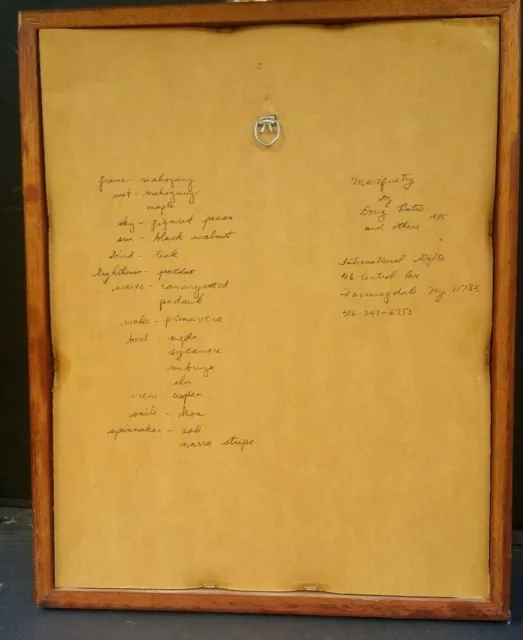 frame mahogany
mat - mahogany
maple
sky - figured pecan
sea - black walnut
bird - teak
lighthouse -
waves - canarywood
padauk
wake - primavera
boat - maple
sycamore
imbuya
elm
crew - aspen
sails - koa
spinnaker - ash
narra stripe
Marquetry
by
Doug
and others 1985
International Gifts
46 Central Ave
Farmingdale Ny 11735
516 293-6753